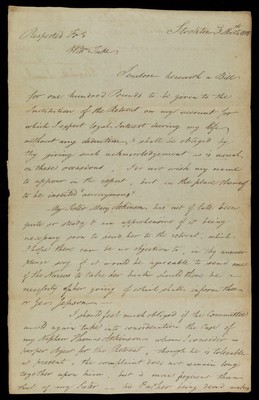 Stockton 3d Mo 1811
Respected Frd
Wm Tuke
I enclose herewith a Bill
for one hundred Pounds to be given to the
Institution of the Retreat on my account for
which I expect legal Interest during my life
without any deduction, & shall be obliged by
thy giving such acknowledgement as is usual
on these occasions. I do not wish my name
to appear in the report, but in the place thereof
to be inserted "anonymous"
My Sister Mary Atkinson has not of late been
quite so steady & am apprehensive of its being
necessary soon to send her to the retreat, which
I hope there can be no objection to, in thy answer
please say if it would be agreeable to send one
of the Nurses to take her back should there be a
necessity after giving of which shall inform thee
or Geo: Jepson
I should feel much obliged if the Committee
would again take into consideration the case of
my Nephew Thomas Atkinson whom I consider a
proper object for the Retreat, though he is tolerable
at present, the complaint does not remain long
together upon him, but is more frequent than
that of my Sister, his Father being dead